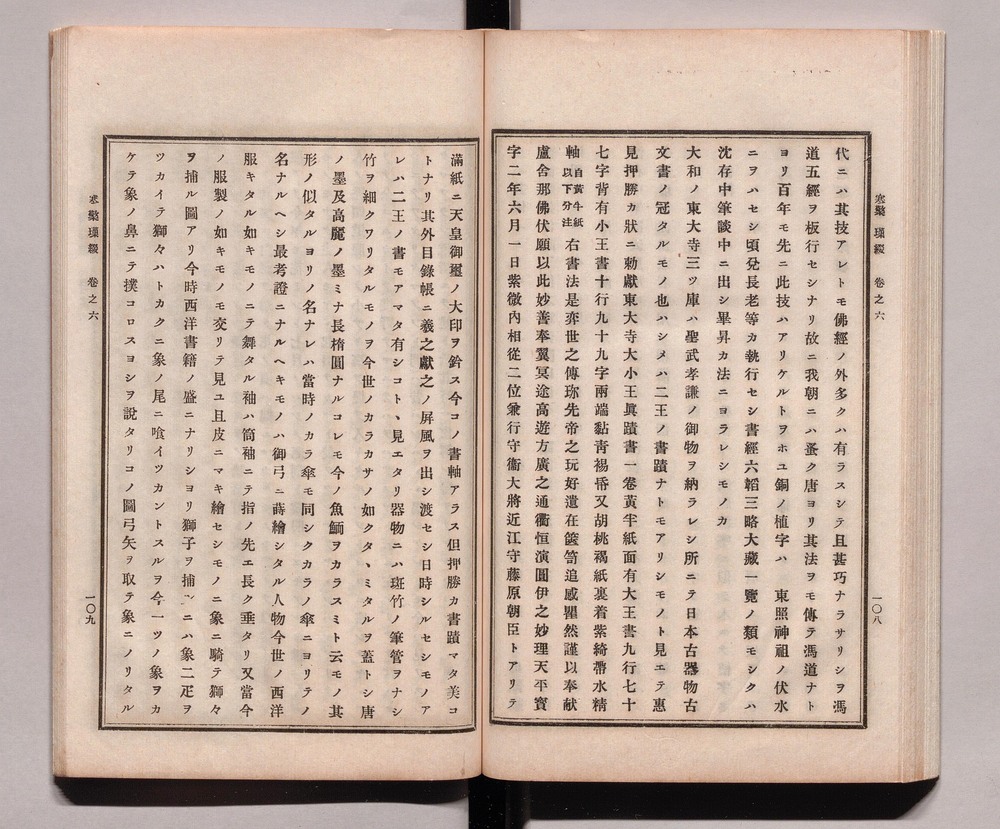 寒檠璅綴 卷之六
一〇八
代ニハ其技アレトモ佛經ノ外多クハ有ラスシテ且甚巧ナラサリシヲ馮
道五經ヲ板行セシナリ故ニ我朝ニハ蚤ク唐ヨリ其法ヲモ傳テ馮道ナト
ヨリ百年モ先ニ此技ハアリケルトヲホユ銅ノ植字ハ 東照神祖ノ伏水
ニヲハセシ頃兌長老等カ執行セシ書經六韜三略大藏一覽ノ類モシクハ
沈存中筆談中ニ出シ畢昇カ法ニヨラレシモノカ
大和ノ東大寺三ツ庫ハ聖武孝謙ノ御物ヲ納ラレシ所ニテ日本古器物古
文書ノ冠タルモノ也ハシメハ二王ノ書蹟ナトモアリシモノト見エテ惠
見押勝カ狀ニ勅獻東大寺大小王眞蹟書一卷黃半紙面有大王書九行七十
七字背有小王書十行九十九字兩端黏靑褐帋又胡桃褐紙裏着紫綺帶水精
軸自黃半紙以下分注右書法是弈世之傳珎先帝之玩好遺在篋笥追感瞿然謹以奉献
盧舍那佛伏願以此妙善奉翼冥途高遊方廣之通衢恒演圓伊之妙理天平寳
字二年六月一日紫微內相從二位兼行守衞大將近江守藤原朝臣トアリテ
滿紙ニ天皇御璽ノ大印ヲ鈐ス今コノ書軸アラス但押勝カ書蹟マタ美コ
トナリ其外目錄帳ニ羲之獻之ノ屏風ヲ出シ渡セシ日時シルセシモノア
レハ二王ノ書モアマタ有シコト、見エタリ器物ニハ斑竹ノ筆管ヲナシ
竹ヲ細クワリタルモノヲ今世ノカラカサノ如クタ、ミタルヲ蓋トシ唐
ノ墨及高麗ノ墨ミナ長楕圓ナルコレモ今ノ魚鰤ヲカラスミト云モノ其
形ノ似タルヨリノ名ナレハ當時ノカラ傘モ同シクカラノ傘ニヨリテノ
名ナルヘシ最考證ニナルヘキモノハ御弓ニ蒔繪シタル人物今世ノ西洋
服キタル如キモノニテ舞タル袖ハ筒袖ニテ指ノ先エ長ク垂タリ又當今
ノ服製ノ如キモノモ交リテ見ユ且皮ニマキ繪セシモノニ象ニ騎テ獅々
ヲ捕ル圖アリ今時西洋書籍ノ盛ニナリシヨリ獅子ヲ捕ニハ象二疋ヲ
ツカイテ獅々ハトカクニ象ノ尾ニ喰イツカントスルヲ今一ツノ象ヲカ
ケテ象ノ鼻ニテ撲コロスヨシヲ說タリコノ圖弓矢ヲ取テ象ニノリタル
寒檠璅綴 卷之六
一〇九